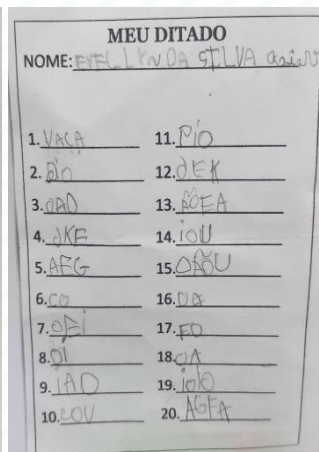 MEU DITADO
NOME: EVELLYN DA SILVA
1. VACA
2.
3. OAD
4. JKE
5. AEG
6. CO
7. OEI
8. OI
9. IAO
10. COV
11. PIO
12. JEK
13. AÕEA
14. IOU
15.
16. OA
17. FO
18. OA
19. IOIO
20. AGFA